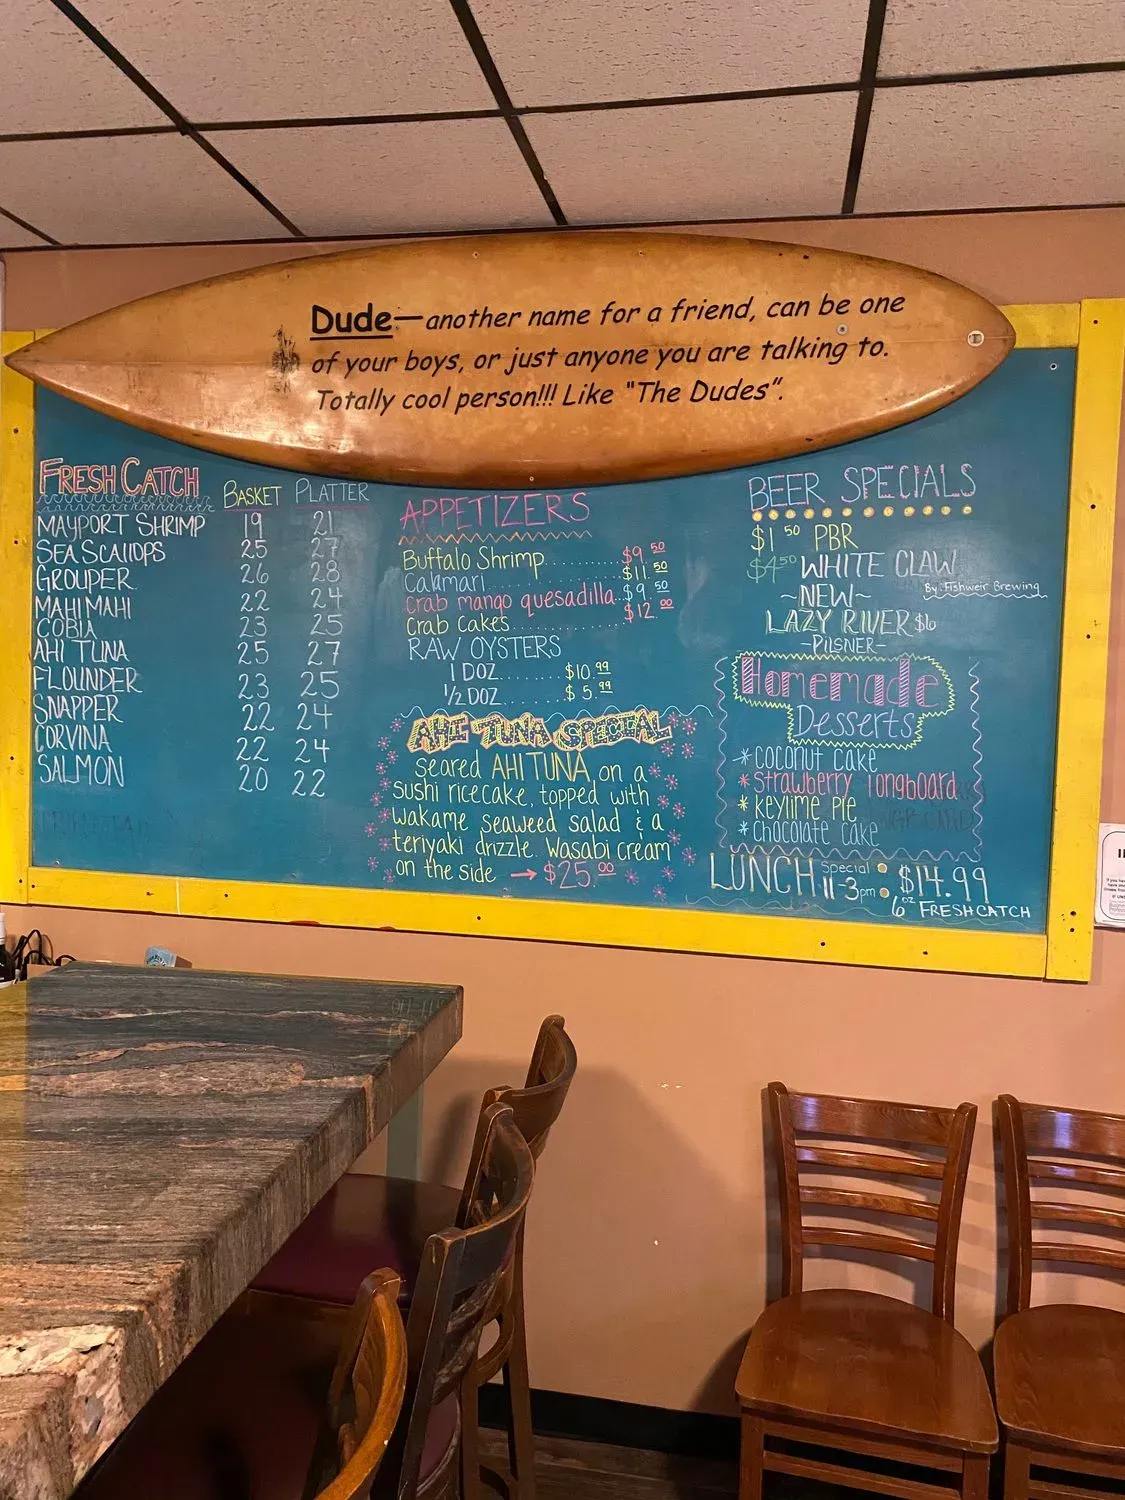 Dude—another name for a friend, can be one
of your boys, or just anyone you are talking to.
Totally cool person!!! Like "The Dudes".
FRESH CATCH BASKET PLATTER
MAYPORT SHRIMP 19 21
SEA SCALLOPS 25 27
GROUPER 26 28
MAHI MAHI 22 24
COBIA 23 25
AHI TUNA 25 27
FLOUNDER 23 25
SNAPPER 22 24
CORVINA 22 24
SALMON 20 22
APPETIZERS
Buffalo Shrimp.......... $9.50
Calamari.......... $11.50
Crab mango quesadilla... $9.50
Crab Cakes.......... $12.00
RAW OYSTERS
1 DOZ........ $10.99
1/2 DOZ........ $5.99
AHI TUNA SPECIAL
seared AHI TUNA, on a
sushi rice cake, topped with
wakame seaweed salad & a
teriyaki drizzle. Wasabi cream
on the side → $25.00
BEER SPECIALS
$1.50 PBR
$4.50 WHITE CLAW
~NEW~ By: Fishweir Brewing
LAZY RIVER $6
-PILSNER-
Homemade
Desserts
*coconut cake
*strawberry longboard
*keylime pie
*chocolate cake
LUNCH special 11-3pm $14.99
6oz FRESH CATCH